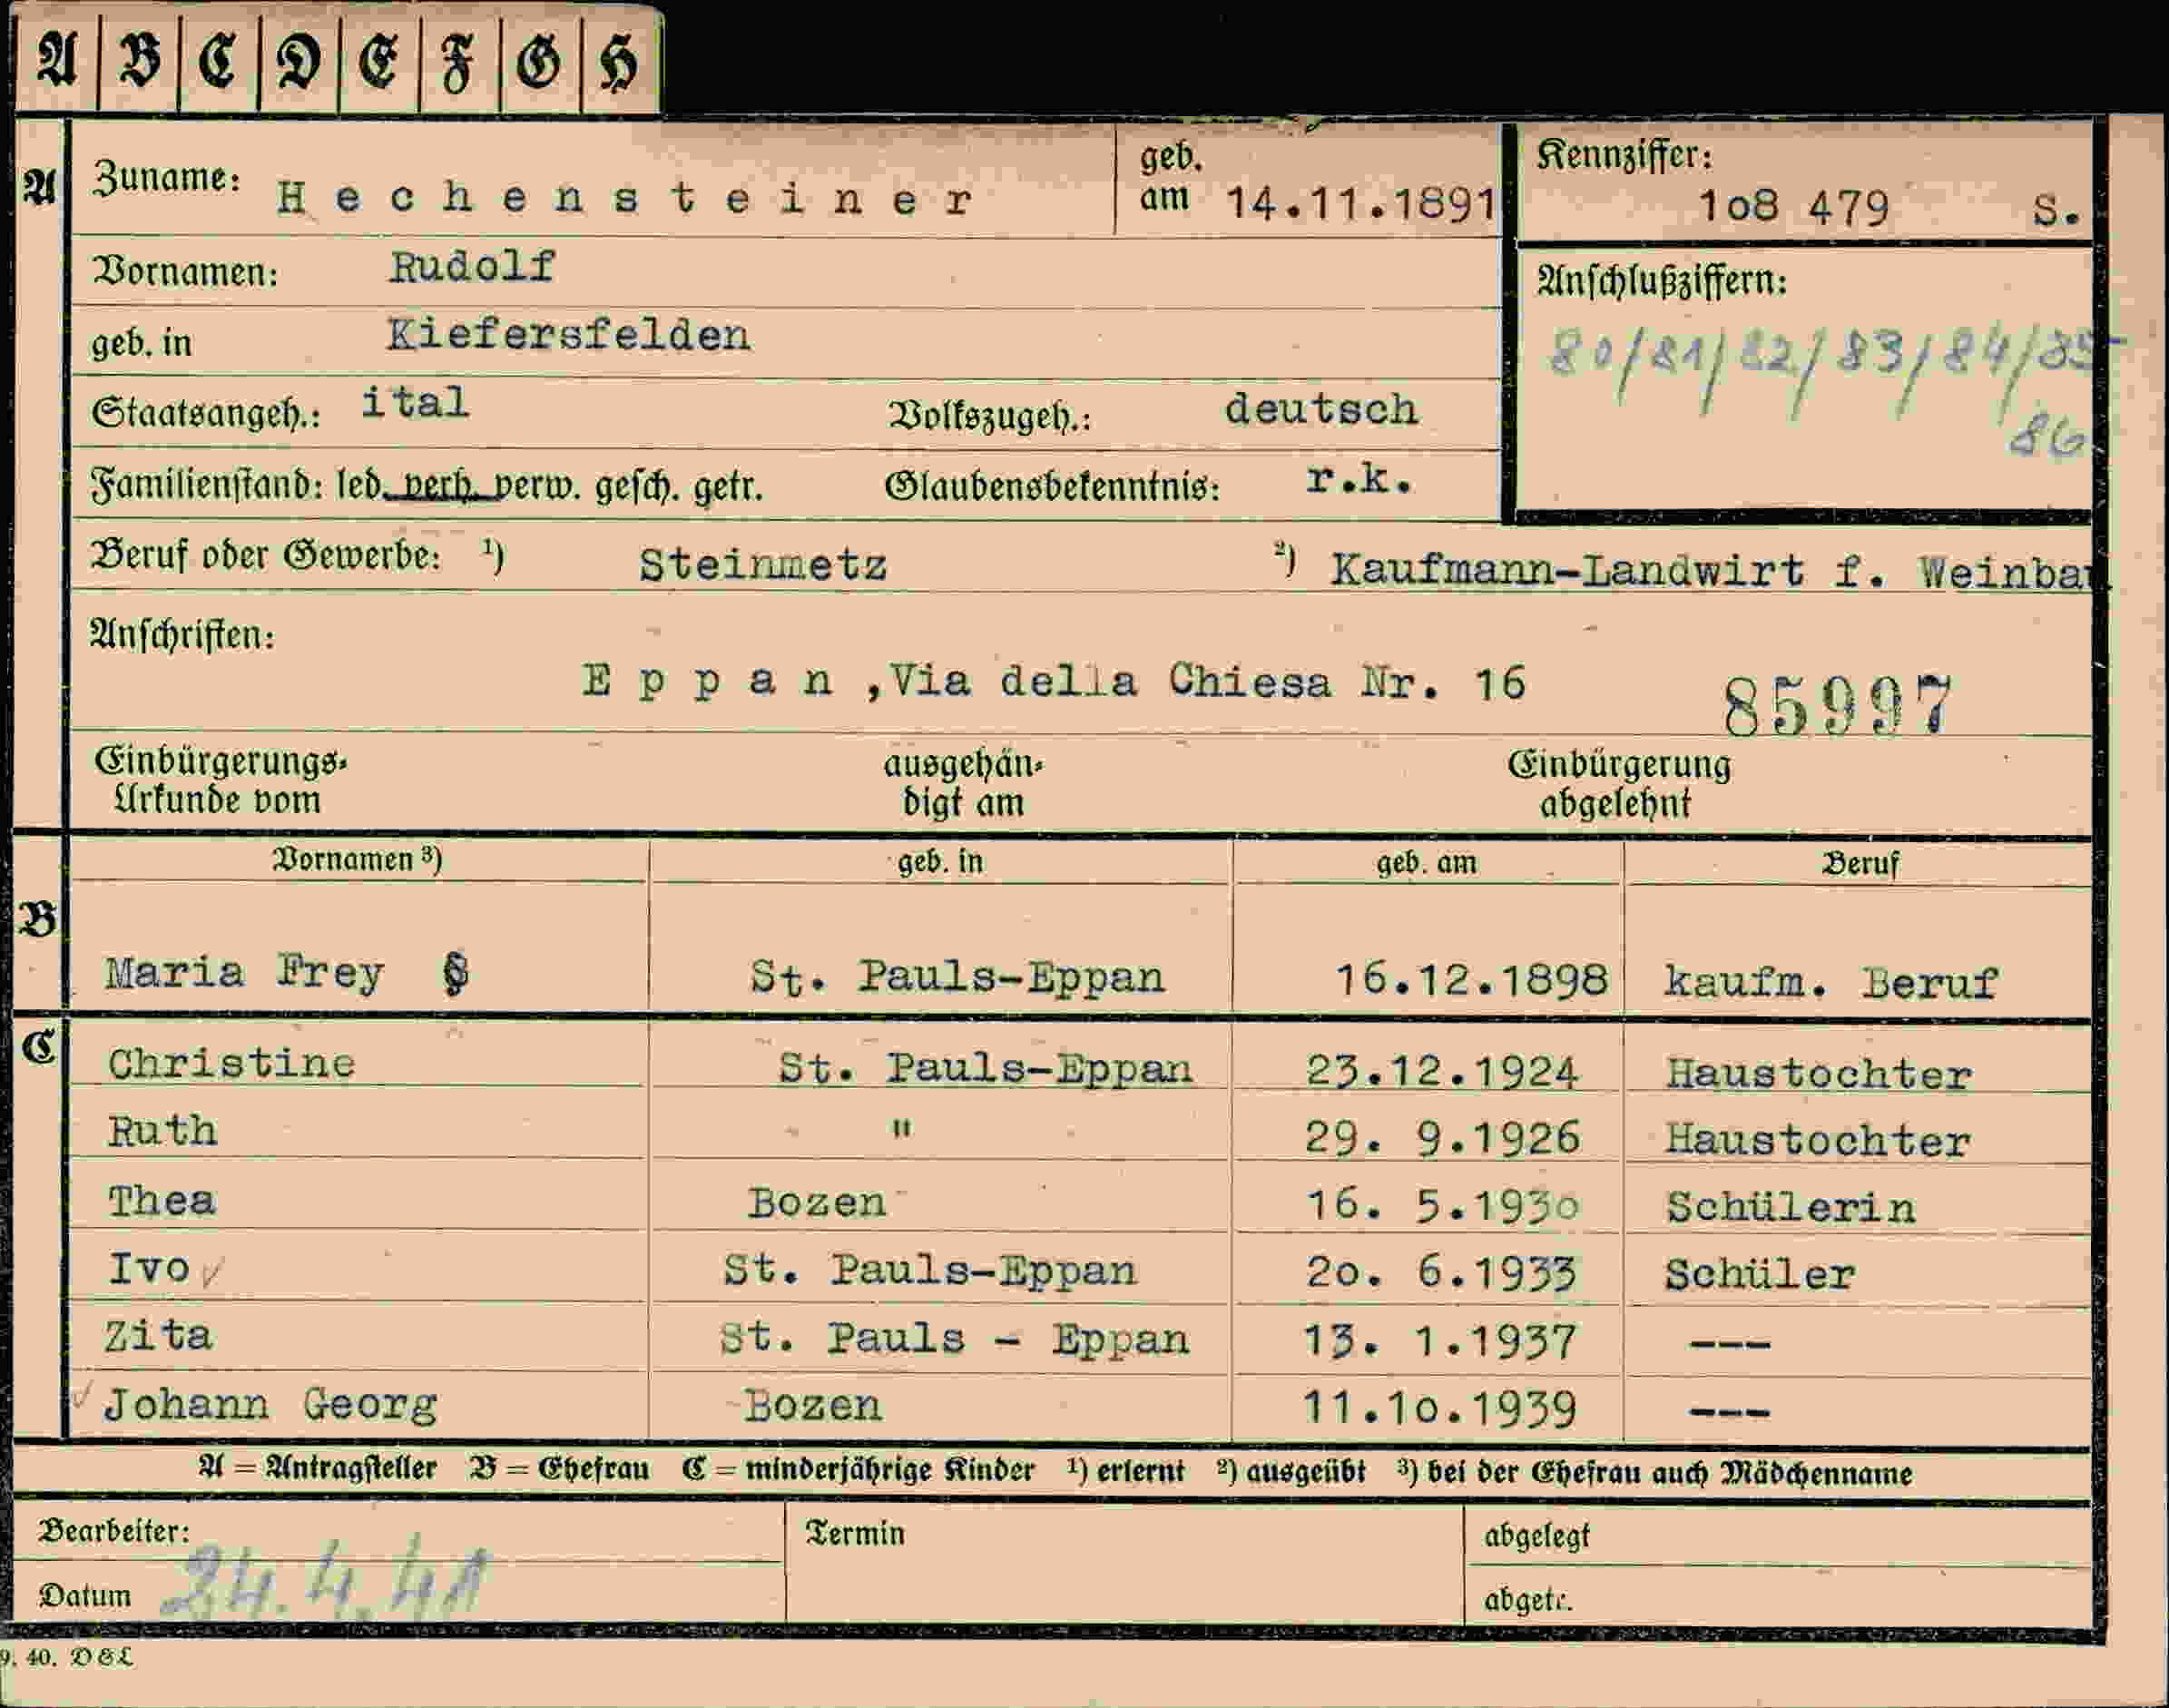 A B C D E F G H
A Zuname: Hechensteiner geb. am 14.11.1891 Kennziffer: 1o8 479 S.
Vornamen: Rudolf Anschlußziffern:
geb. in Kiefersfelden 80/81/82/83/84/85
Staatsangeh.: ital Volkszugeh.: deutsch 86
Familienstand: led. verh. verw. gesch. getr. Glaubensbekenntnis: r.k.
Beruf oder Gewerbe: ¹) Steinmetz ²) Kaufmann-Landwirt f. Weinbau
Anschriften:
Eppan ,Via della Chiesa Nr. 16 85997
Einbürgerungs- ausgehän- Einbürgerung
Urkunde vom digt am abgelehnt
Vornamen ³) geb. in geb. am Beruf
B
Maria Frey § St. Pauls-Eppan 16.12.1898 kaufm. Beruf
C Christine St. Pauls-Eppan 23.12.1924 Haustochter
Ruth " 29. 9.1926 Haustochter
Thea Bozen 16. 5.193o Schülerin
Ivo St. Pauls-Eppan 2o. 6.1933 Schüler
Zita St. Pauls - Eppan 13. 1.1937 ---
Johann Georg Bozen 11.1o.1939 ---
A = Antragsteller B = Ehefrau C = minderjährige Kinder ¹) erlernt ²) ausgeübt ³) bei der Ehefrau auch Mädchenname
Bearbeiter: Termin abgelegt
Datum 24.4.41 abgetr.
9. 40. D&L